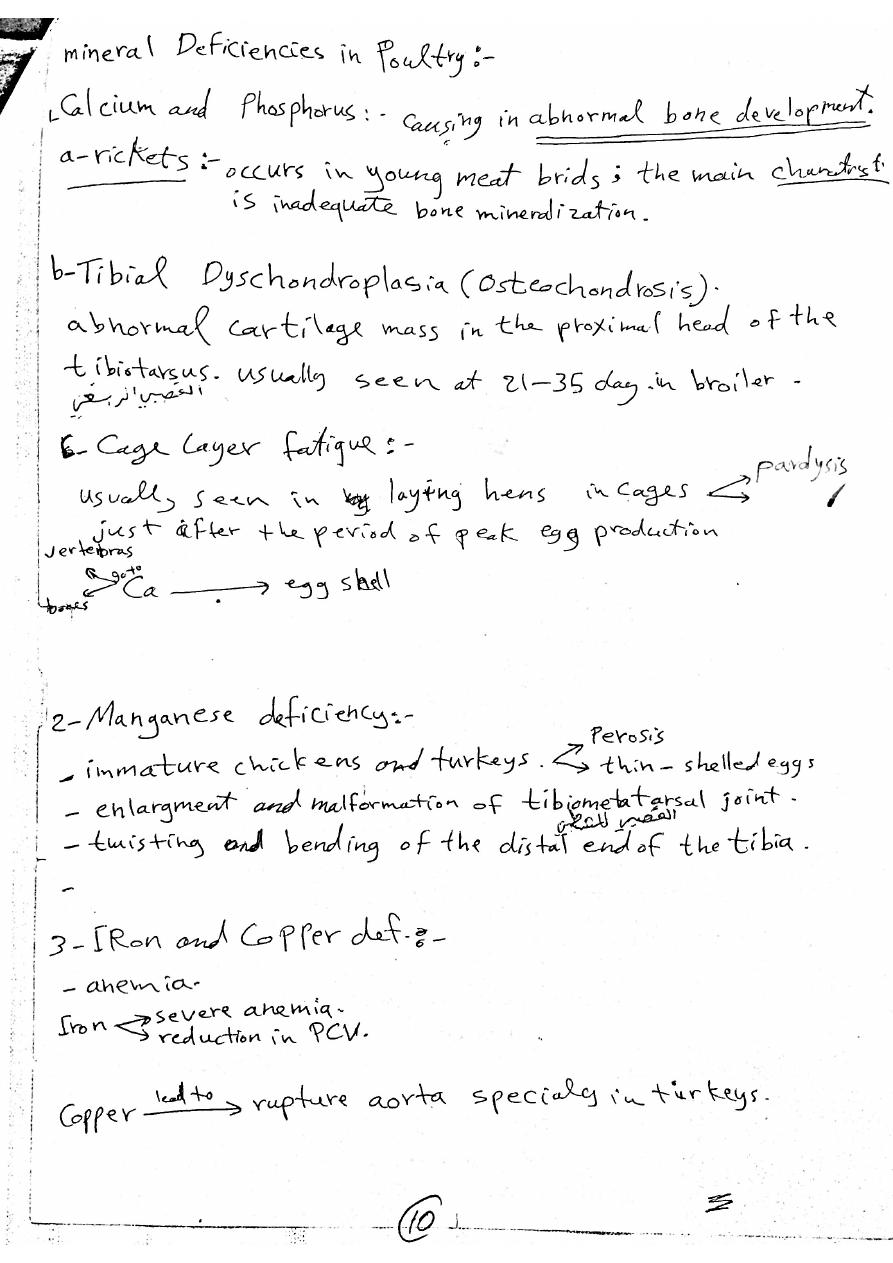 mineral Deficiencies in Poultry:-
Calcium and Phosphorus:- causing in abnormal bone development.
a-rickets:- occurs in young meat brids; the main
is inadequate bone mineralization.
b-Tibial Dyschondroplasia (Osteochondrosis).
abnormal cartilage mass in the proximal head of the
tibiotarsus. usually seen at 21-35 day. in broiler -
c- Cage Layer fatigue:-
usually seen in laying hens in cages
paralysis
just after the period of peak egg production
vertebras
go to
Ca → egg shell
bones
2- Manganese deficiency:-
- immature chickens and turkeys.
Perosis
thin-shelled eggs
- enlargment and malformation of tibiometatarsal joint.
- twisting and bending of the distal end of the tibia.
-
3- IRon and Copper def.:-
- anemia-
Iron
severe anemia-
reduction in PCV.
Copper lead to → rupture aorta specialy in turkeys.
10